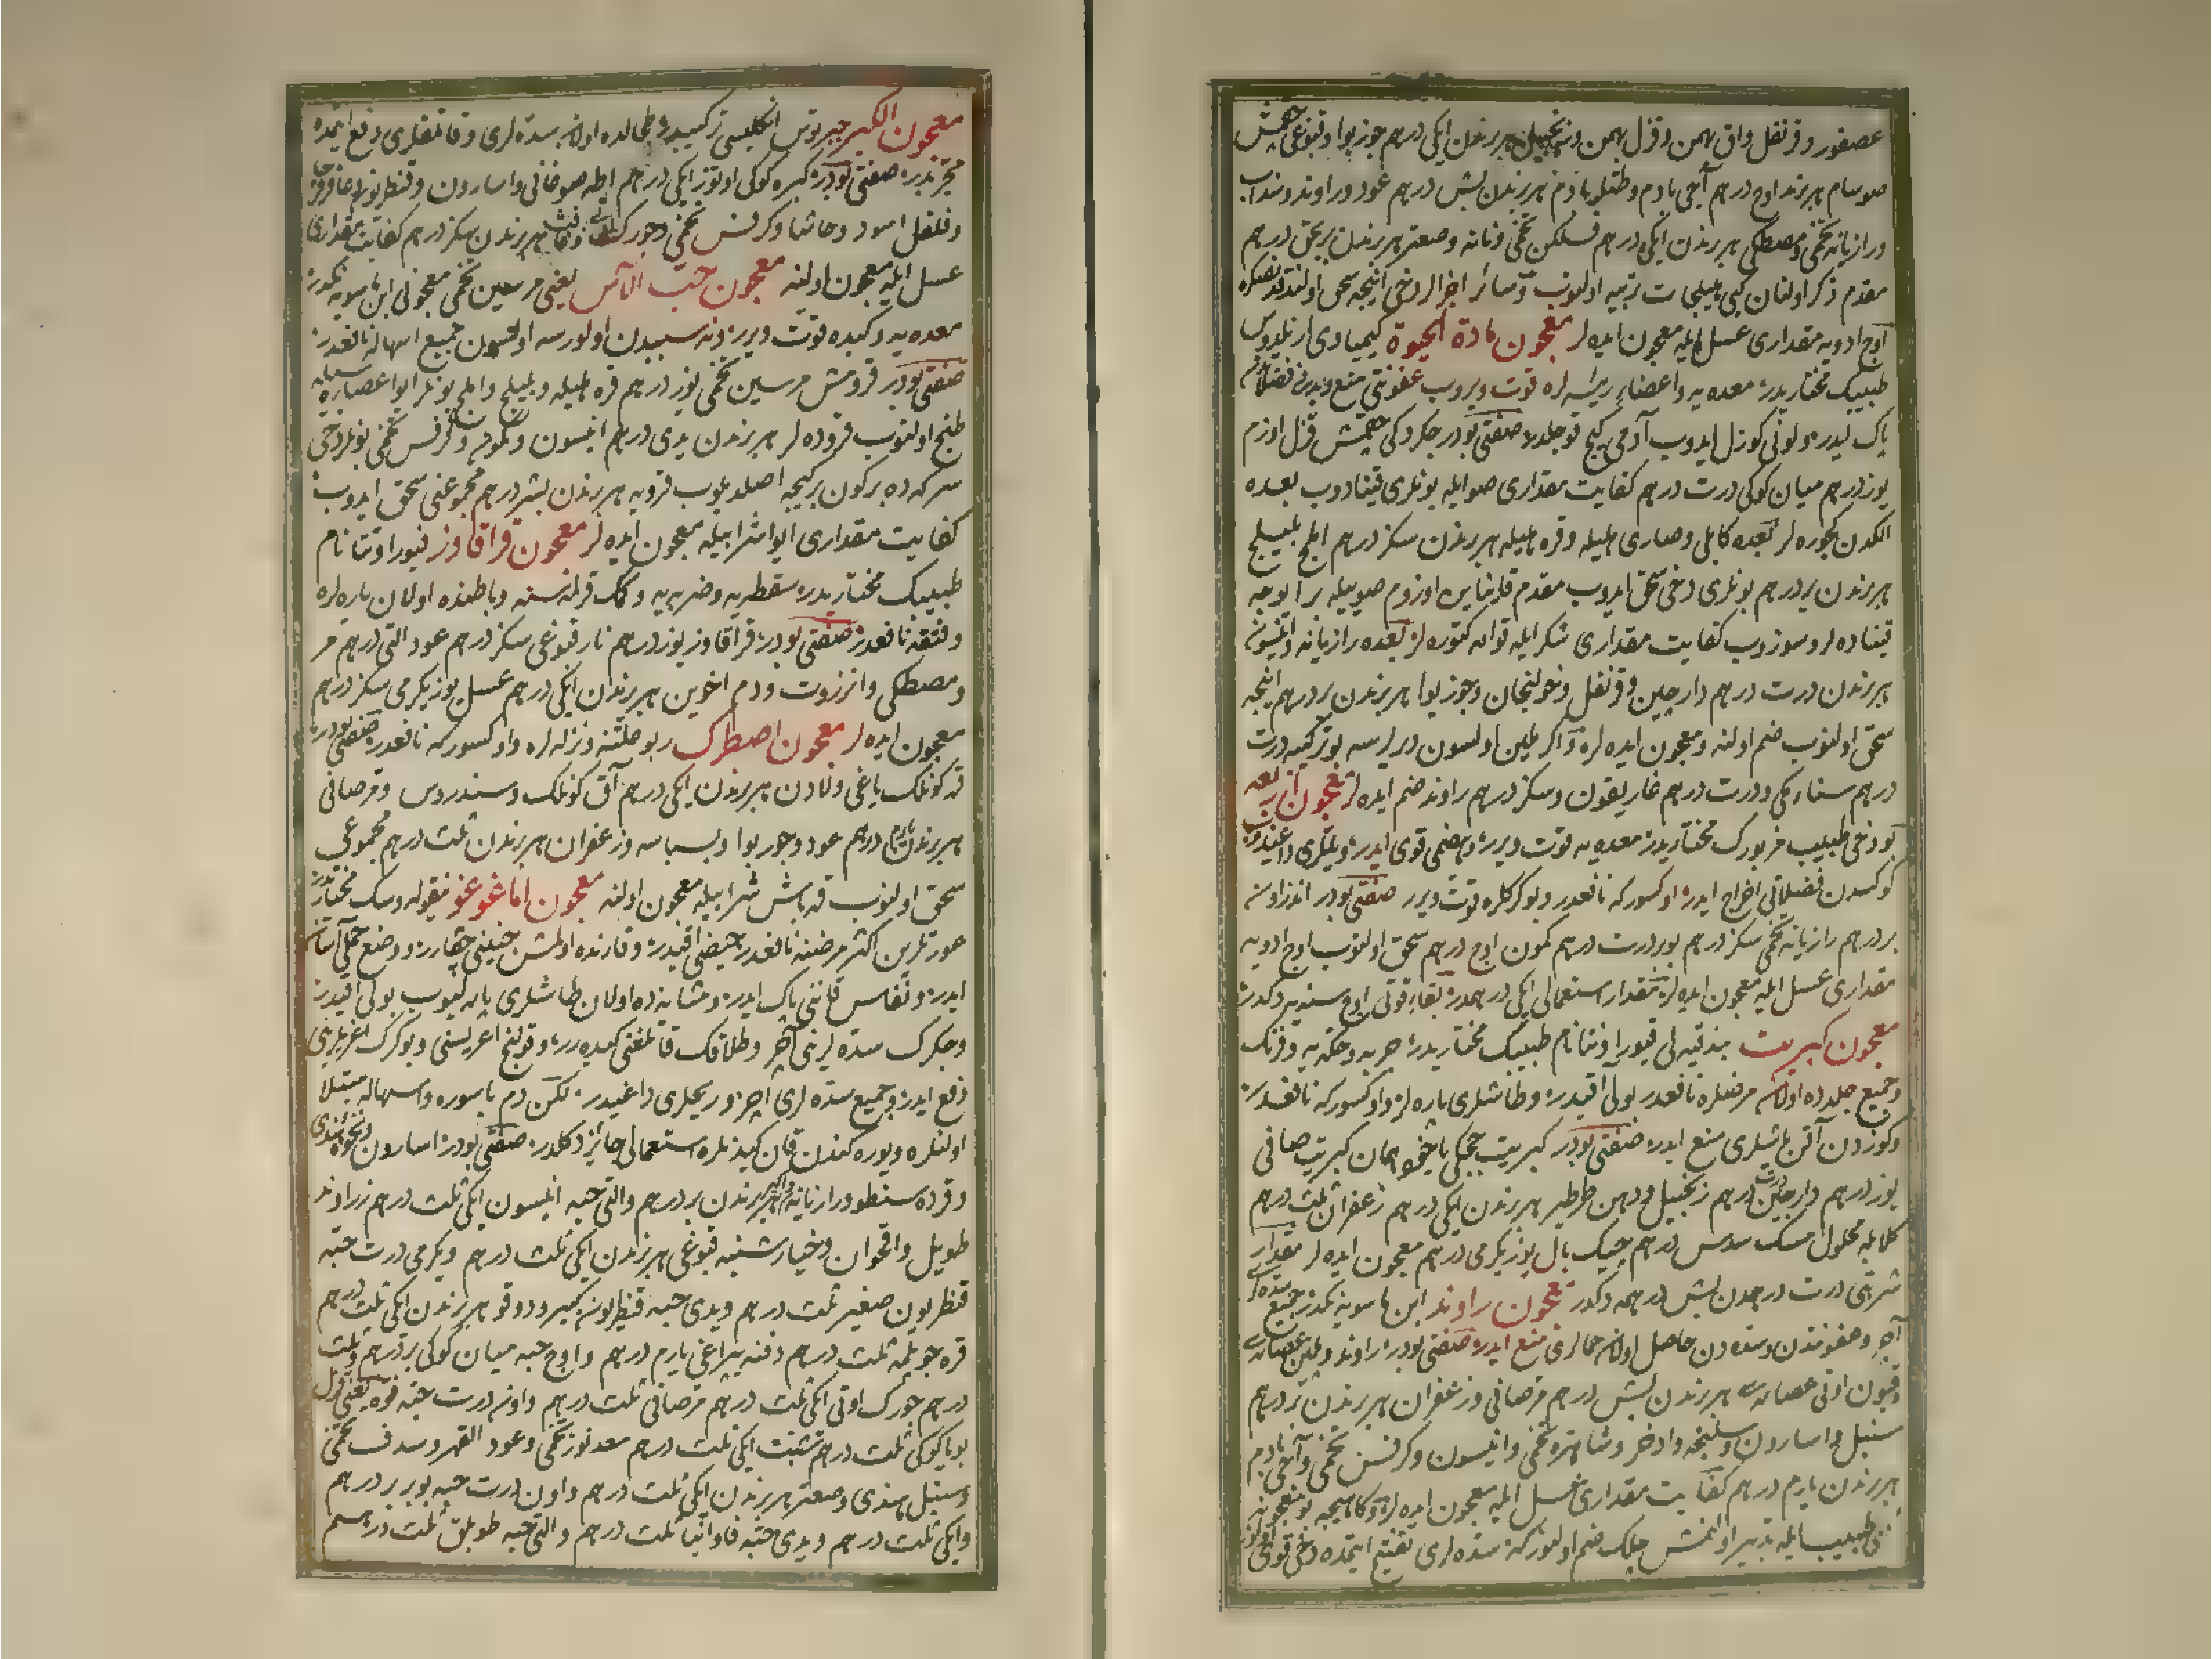 عصفور و قرنفل و اق بهمن و قزل بهمن و زنجبیل هر برندن ایکی درهم جوز بوا و قبوغی چقمش
صوسام هر برندن اوچ درهم آجی بادم و طتلو بادم هر برندن بش درهم عود و راوند و سنداب
و رازیانه تخمی و مصطکی هر برندن ایکی درهم فسلکن تخمی و نانه و صعتر هر برندن بر درهم
مقدم ذکر اولنان کبی هلیلجات تربیه اولنوب و سائر اجزالر دخی اینجه سحق اولندقدنصکره
اوچ ادویه مقداری عسل ایله معجون ایده لر معجون مادة الحیوة کیمیادی ارنلدوس
طبیبک مختاریدر معده یه و اعضاء رئیسه لره قوت ویروب عفونتی منع و بدنی فضلاتدن
پاک ایدر و لونی کوزل ایدوب آدمی کیج قوجلدر صفتی بودر جکردکی چقمش قزل اوزم
یوز درهم میان کوکی درت درهم کفایت مقداری صو ایله بونلری قینادوب بعده
الکدن کچوره لر بعده کابلی و صاری هلیله و قره هلیله هر برندن سکز درهم املج بلیلج
هر برندن بر درهم بونلری دخی سحق ایدوب مقدم قاینایان اوزوم صوییله برابوجه
قیناده لر و سوزوب کفایت مقداری شکر ایله قوامه کتوره لر بعده رازیانه و انیسون
هر برندن درت درهم دارچین و قرنفل و خولنجان و جوز بوا هر برندن بر درهم اینجه
سحق اولنوب ضم اولنه و معجون ایده لر و اکر ملین اولسون دیرلرسه بو ترکیبه درت
درهم سناء مکی و درت درهم غاریقون و سکز درهم راوند ضم ایده لر معجون آزربعه
بو دخی طبیب مزبورک مختاریدر معده یه قوت ویرر و هضمی قوی ایدر و یللری داغیدر
کوکسدن فضلاتی اخراج ایدر و اوکسورکه نافعدر و بوکرکلره قوت ویرر صفتی بودر اندزاونه
بر درهم رازیانه تخمی سکز درهم بورد درت درهم کمون اوچ درهم سحق اولنوب اوچ ادویه
مقداری عسل ایله معجون ایده لر مقدار استعمالی ایکی درهمدر بقاء قوتی اوچ سنه یه دکدر
معجون کبریت بندقیه لی قیورا ونتا نام طبیبک مختاریدر جربه و حکه یه و فرنک
و جمیع جلدده اولان مرضلره نافعدر بولی اقیدر و طاشلری پاره لر و اوکسورکه نافعدر
و کوزدن آقن یاشلری منع ایدر صفتی بودر کبریت چچکی یاخود همان کبریت صافی
یوز درهم دارچین درت درهم زنجبیل و دهن طرطیر هر برندن ایکی درهم زعفران ثلث درهم
کلابله محلول مسک سدس درهم چیک بال یوز یکرمی درهم معجون ایده لر مقدار
شربتی درت درهمدن بش درهمه دکدر معجون راوند ابن ماسویه نکدر جمیع سده لری
آچر و عفونتدن و سده دن حاصل اولان حمالری منع ایدر صفتی بودر راوند و ملین عصاره سی
و قیون اوتی عصاره سی هر برندن بش درهم مرصافی و زعفران هر برندن بر درهم
سنبل و اسارون و سلیخه و اذخر و شاهتره تخمی و انیسون و کرفس تخمی و آجی بادم
هر برندن یارم درهم کفایت مقداری عسل ایله معجون ایده لر و کاهیجه بو معجونه
طبیب ایله تدبیر اولنمش چلک ضم اولنور که سده لری تفتیح ایتمده دخی قوتلو اولور
معجون الکبر جبر یوس انکلیسی ترکیبیدر طحالده اولان سده لری و قاتیلقلری دفع ایتمده
مجربدر صفتی بودر کبره کوکی اوتوز ایکی درهم اطه صوغانی و اسارون و قنطریون و عاقرقرحا
و فلفل اسود و حاشا و کرفس تخمی هر برندن سکز درهم کفایت مقداری
عسل ایله معجون اولنه معجون حب الآس یعنی مرسین تخمی معجونی ابن ماسویه نکدر
معده یه و کبده قوت ویرر و نه سببدن اولورسه اولسون جمیع اسهاله نافعدر
صفتی بودر قرومش مرسین تخمی یوز درهم قره هلیله و بلیلج و املج بونلر ایوا عصاره سیله
طبخ اولنوب قروده لر هر برندن یدی درهم انیسون و کمون و کرفس تخمی بونلر دخی
سرکه ده بر کون بر کیجه اصلدیلوب قرویه هر برندن بشر درهم مجموعنی سحق ایدوب
کفایت مقداری ایوا شرابیله معجون ایده لر معجون قراقاوز قیورا ونتا نام
طبیبک مختاریدر سقطه یه و ضربه یه و کمک قرلمسنه و باطنده اولان یاره لره
و فتقه نافعدر صفتی بودر قراقاوز یوز درهم نار قبوغی سکز درهم عود التی درهم مر
و مصطکی و انزروت و دم اخوین هر برندن ایکی درهم عسل یوز یکرمی سکز درهم
معجون ایده لر معجون اصطرک ربو علتنه و نزله لره و اوکسورکه نافعدر صفتی بودر
قره کونلک یاغی و لادن هر برندن ایکی درهم آق کونلک و سندروس و مرصافی
هر برندن یارم درهم عود و جوز بوا و بسباسه و زعفران هر برندن ثلث درهم مجموعی
سحق اولنوب قره باش شرابیله معجون اولنه معجون اماغوغو نیقوله وسک مختاریدر
عورتلرین اکثر مرضنه نافعدر حیضی اقیدر و قارنده اولمش جنینی چقارر و وضع حملی آسان
ایدر و نفاس قاننی پاک ایدر و مثانه ده اولان طاشلری پاره لیوب بولی اقیدر
و جکرک سده لرینی آچر و طلاقک قاتیلغنی کیدرر و قولنج اغریسنی و بوکرک اغریلرینی
دفع ایدر و جمیع سده لری آچر و ریحلری داغیدر لکن دم باسوره و اسهاله مبتلا
اولنلره و بوره کندن قان کیدنلره استعمالی جائز دکلدر صفتی بودر اسارون و نجوه هندی
و قرده سنطو و رازیانه هر برندن بر درهم و التی حبه انیسون ایکی ثلث درهم زراوند
طویل و اقحوان و خیارشنبه قبوغی هر برندن ایکی ثلث درهم و یکرمی درت حبه
قنطریون صغیر ثلث درهم و یدی حبه قنطریون کبیر و دوقو هر برندن ایکی ثلث درهم
قره جویلمه ثلث درهم دفنه یپراغی یارم درهم و اوچ حبه میان کوکی بر درهم و ثلث
درهم جورک اوتی ایکی ثلث درهم مرصافی ثلث درهم و اون درت حبه فوه یعنی قزل
بویا کوکی ثلث درهم شبث ایکی ثلث درهم معدنوز تخمی و عود القهر و سدف تخمی
و سنبل هندی و صعتر هر برندن ایکی ثلث درهم و اون درت حبه بوبر بر درهم
و ایکی ثلث درهم و یدی حبه فاوانیا ثلث درهم و التی حبه طوبلق ثلث درهم